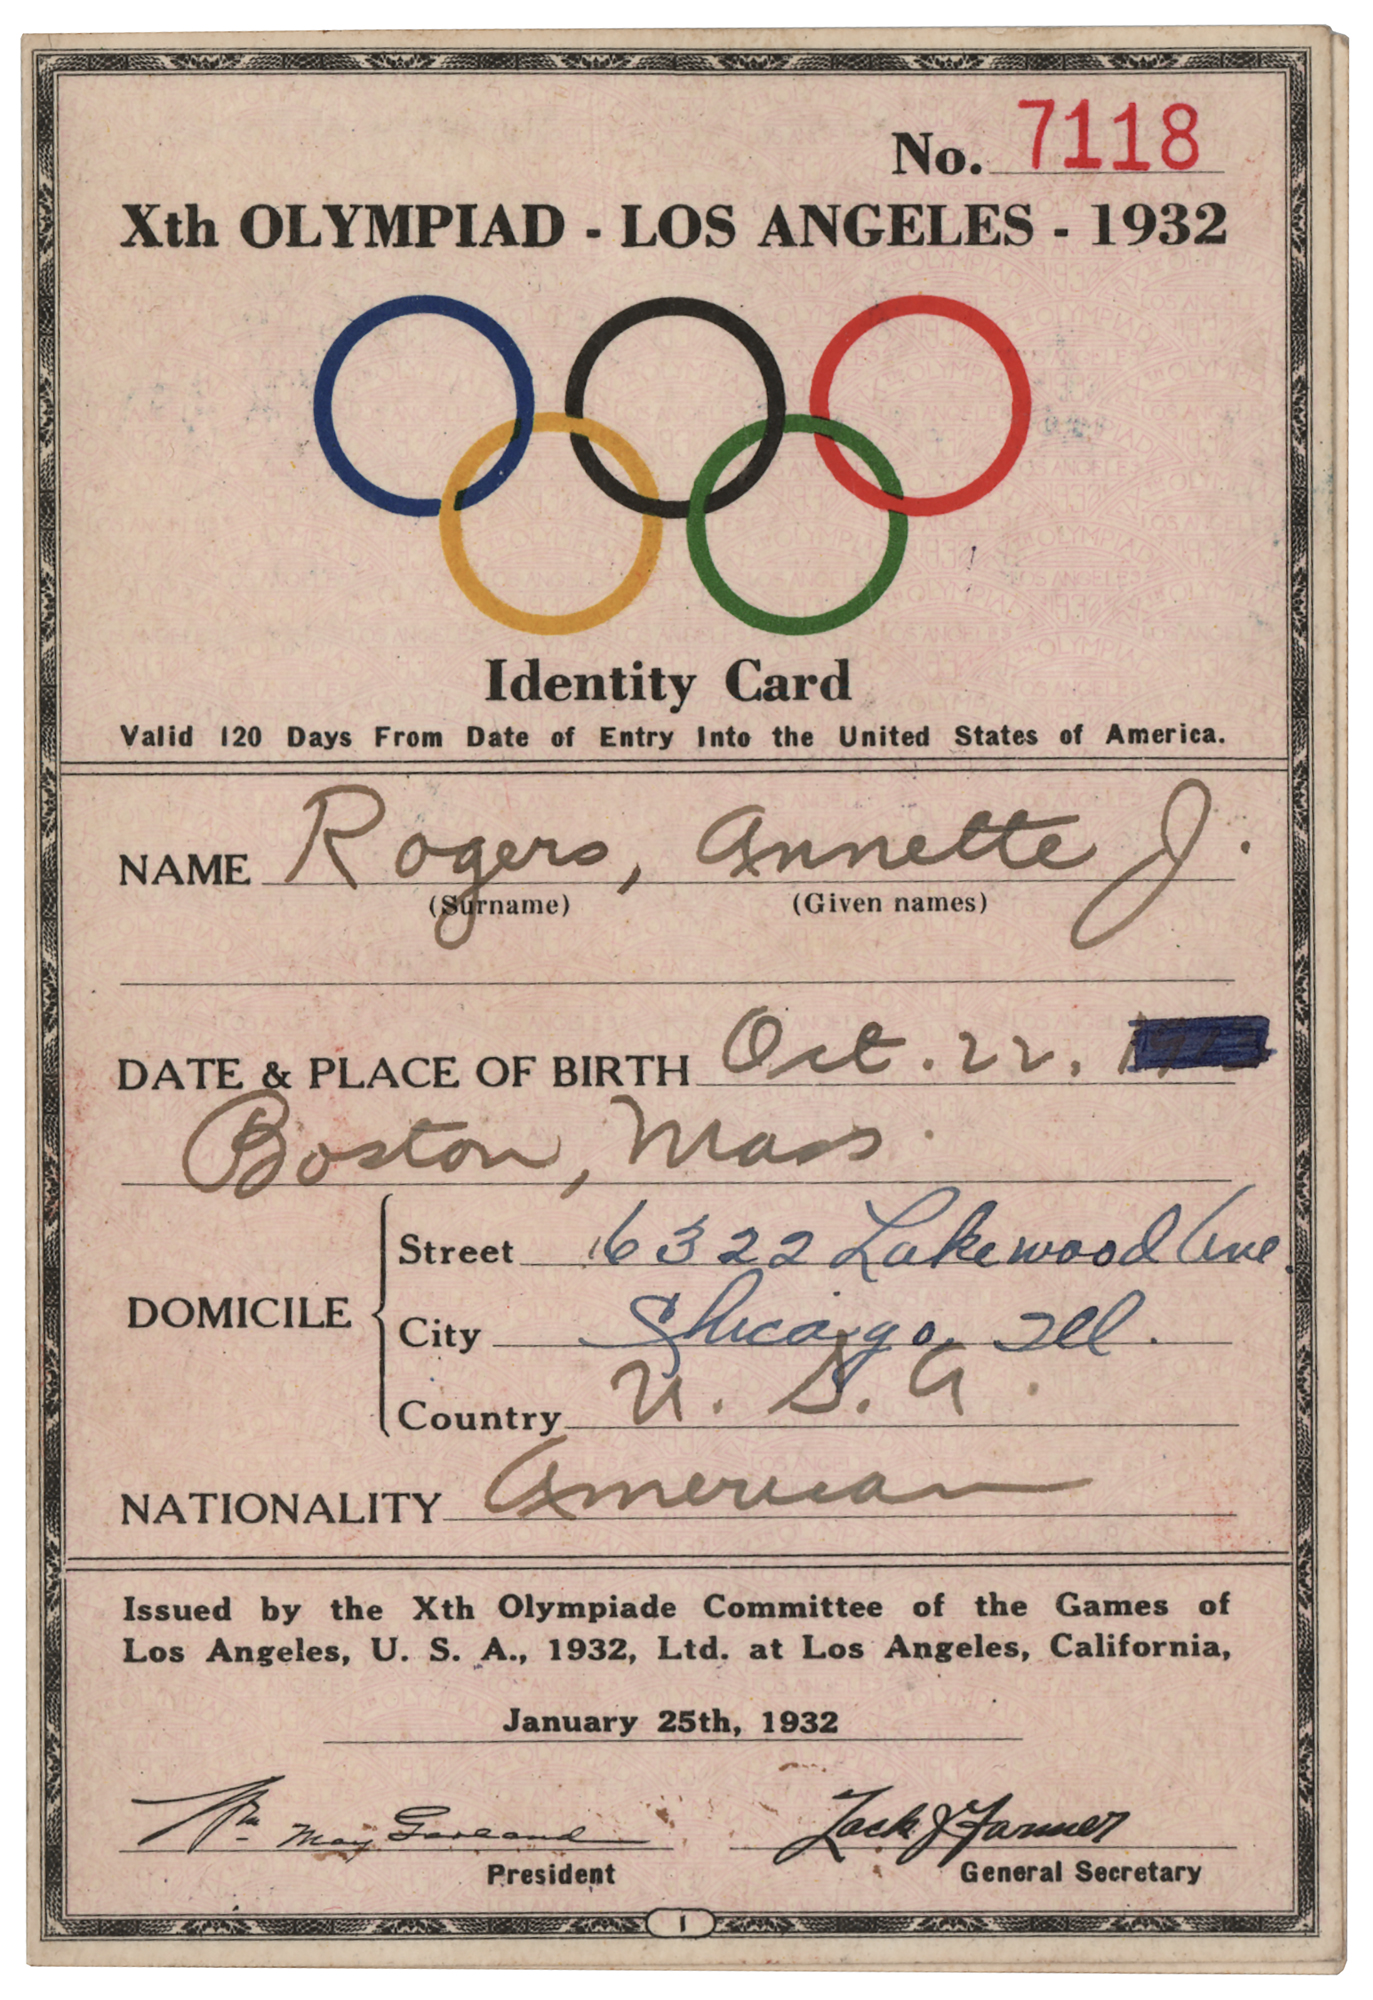 No. 7118
Xth OLYMPIAD - LOS ANGELES - 1932
Identity Card
Valid 120 Days From Date of Entry Into the United States of America.
NAME Rogers, Annette J.
(Surname) (Given names)
DATE & PLACE OF BIRTH Oct. 22,
Boston, Mass.
DOMICILE
Street 6322 Lakewood Ave.
City Chicago, Ill.
Country U. S. A.
NATIONALITY American
Issued by the Xth Olympiade Committee of the Games of
Los Angeles, U. S. A., 1932, Ltd. at Los Angeles, California,
January 25th, 1932
Wm May Garland Zack J Farmer
President General Secretary
1